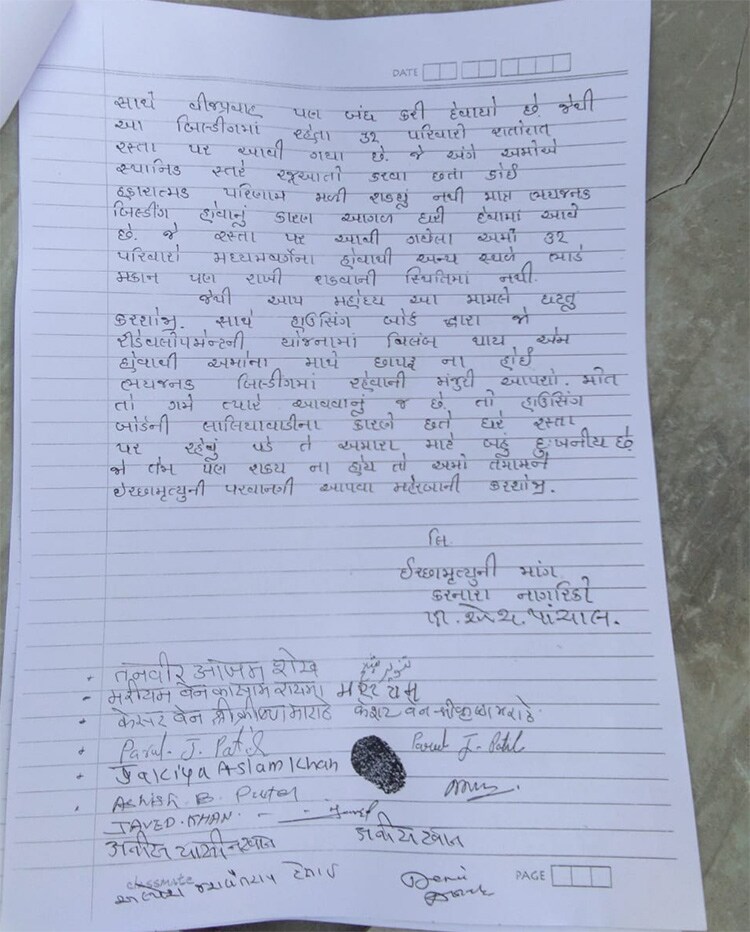 DATE
સાથે વીજપ્રવાહ પણ બંધ કરી દેવાયો છે. જેથી
આ બિલ્ડીંગમાં રહેતા ૩૨ પરિવારો રાતોરાત
રસ્તા પર આવી ગયા છે. જે અંગે અમોએ
સ્થાનિક સ્તરે રજૂઆતો કરવા છતા કોઈ
હકારાત્મક પરિણામ મળી શક્યું નથી માત્ર ભયજનક
બિલ્ડીંગ હોવાનું કારણ આગળ ધરી દેવામાં આવે
છે. જે રસ્તા પર આવી ગયેલા અમો ૩૨
પરિવારો મધ્યમવર્ગના હોવાથી અન્ય સ્થળે ભાડે
મકાન પણ રાખી શકવાની સ્થિતિમાં નથી.
જેથી આપ મહોદય આ મામલે ઘટતુ
કરશોજી. સાથે હાઉસિંગ બોર્ડ દ્વારા જો
રીડેવલોપમેન્ટની યોજનામાં વિલંબ થાય એમ
હોવાથી અમોના માથે છાપરૂ ના હોઈ
ભયજનક બિલ્ડીંગમાં રહેવાની મંજુરી આપશો. મોત
તો ગમે ત્યારે આવવાનું જ છે. તો હાઉસિંગ
બોર્ડની લાલિયાવાડીના કારણે છતે ઘરે રસ્તા
પર રહેવું પડે તે અમારા માટે બહુ દુ:ખનીય છે.
જો તેમ પણ શક્ય ના હોય તો અમો તમામને
ઈચ્છામૃત્યુની પરવાનગી આપવા મહેરબાની કરશોજી.
લિ
ઈચ્છામૃત્યુની માંગ
કરનારા નાગરિકો
પી. એચ. પાંચાલ.
તનવીર આજમ શેખ
મરીયમ બેન કાસમ મરીયમ
કેસર બેન શ્રીકૃષ્ણ મરાઠે કેશર બેન શ્રીકૃષ્ણ મરાઠે
Parul. J. Patil Parul J. Patil
Jakiya Aslam Khan
Ashish B. Patel
JAVED. KHAN.
યાસીનખાન
classmate
PAGE